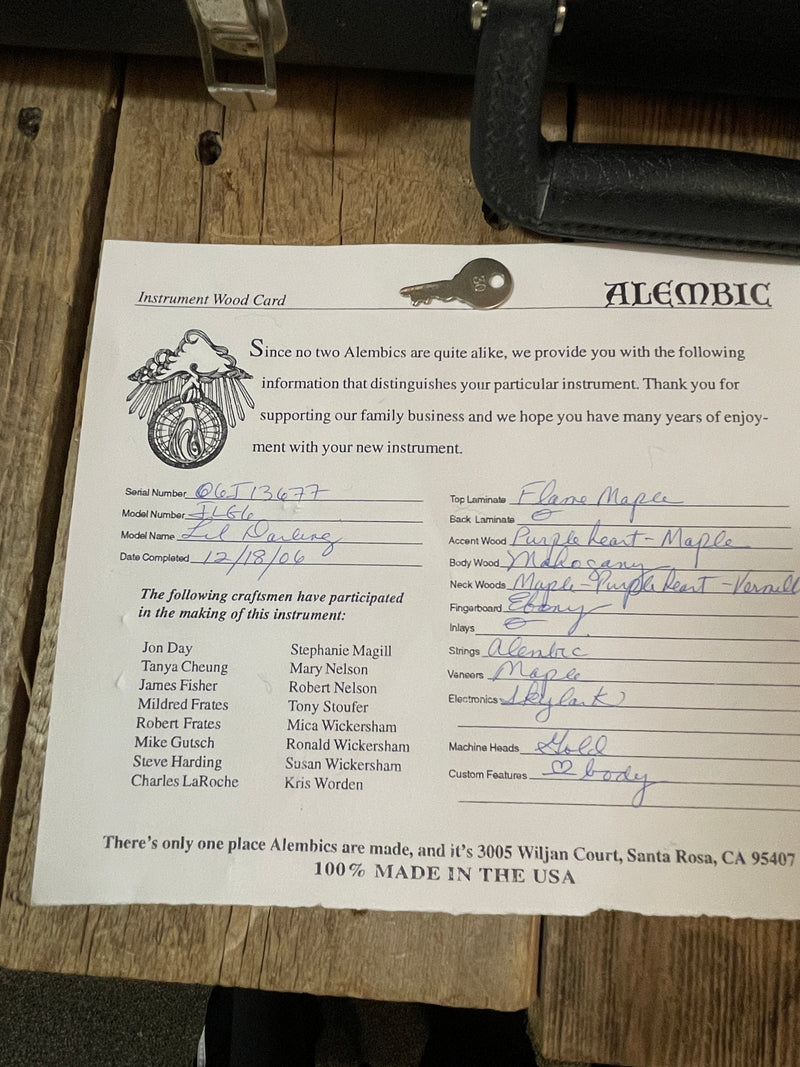 Instrument Wood Card
ALEMBIC
Since no two Alembics are quite alike, we provide you with the following
information that distinguishes your particular instrument. Thank you for
supporting our family business and we hope you have many years of enjoy-
ment with your new instrument.
Serial Number 06J13677
Model Number
Model Name Lil Darling
Date Completed 12/18/06
The following craftsmen have participated
in the making of this instrument:
Jon Day
Tanya Cheung
James Fisher
Mildred Frates
Robert Frates
Mike Gutsch
Steve Harding
Charles LaRoche
Stephanie Magill
Mary Nelson
Robert Nelson
Tony Stoufer
Mica Wickersham
Ronald Wickersham
Susan Wickersham
Kris Worden
Top Laminate Flame Maple
Back Laminate
Accent Wood Purpleheart - Maple
Body Wood Mahogany
Neck Woods Maple - Purpleheart -
Fingerboard Ebony
Inlays
Strings Alembic
Veneers Maple
Electronics Skylark
Machine Heads Gold
Custom Features ♡ body
There's only one place Alembics are made, and it's 3005 Wiljan Court, Santa Rosa, CA 95407
100% MADE IN THE USA